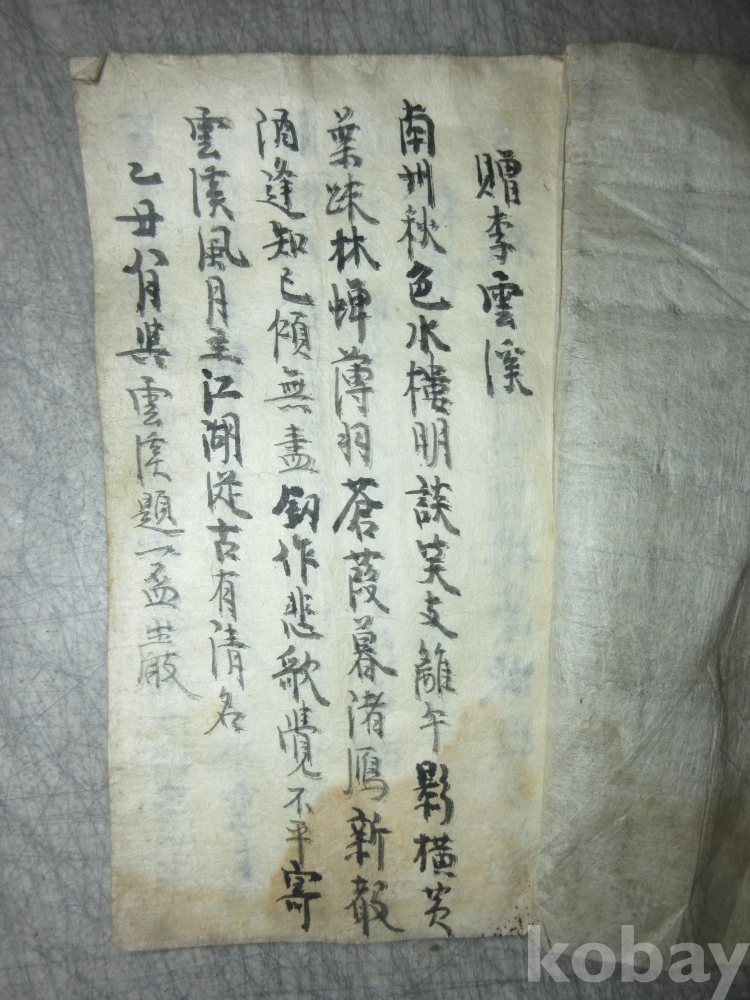 贈李雲溪
南州秋色水樓明談笑支離午影橫黃
葉踈林蟬薄羽蒼葭暮渚鴈新聲
酒逢知己傾無盡劒作悲歌覺不平寄
雲溪風月主江湖從古有清名
乙丑八月與雲溪題一孟
kobay